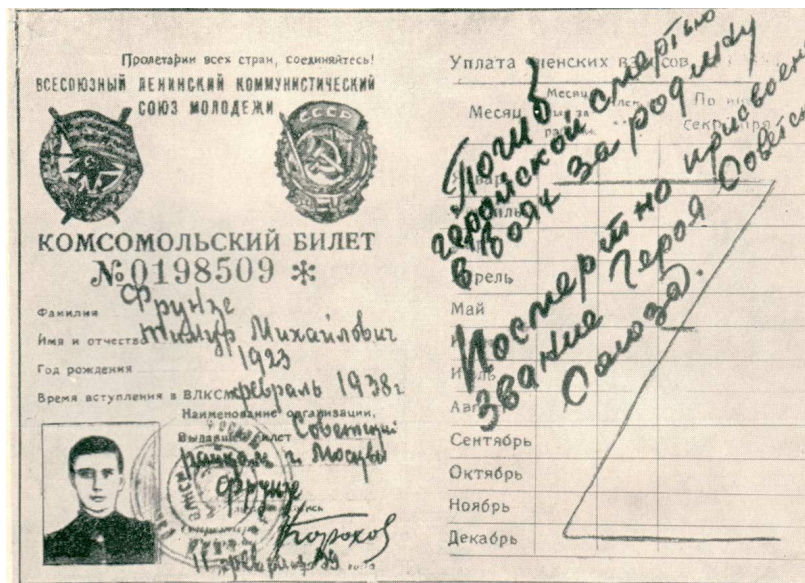 Пролетарии всех стран, соединяйтесь!
ВСЕСОЮЗНЫЙ ЛЕНИНСКИЙ КОММУНИСТИЧЕСКИЙ
СОЮЗ МОЛОДЕЖИ
СССР
КОМСОМОЛЬСКИЙ БИЛЕТ
№ 0198509 *
Фамилия Фрунзе
Имя и отчество Тимур Михайлович
Год рождения 1923
Время вступления в ВЛКСМ февраль 1938 г
Наименование организации,
Выдавшей билет Советский
райком г. Москвы
Фрунзе
11 февраля 39
Уплата членских взносов
Месяц
Май
Сентябрь
Октябрь
Ноябрь
Декабрь
Погиб
геройской смертью
в боях за родину
Посмертно присвоен
звание Героя Советск
Союза.